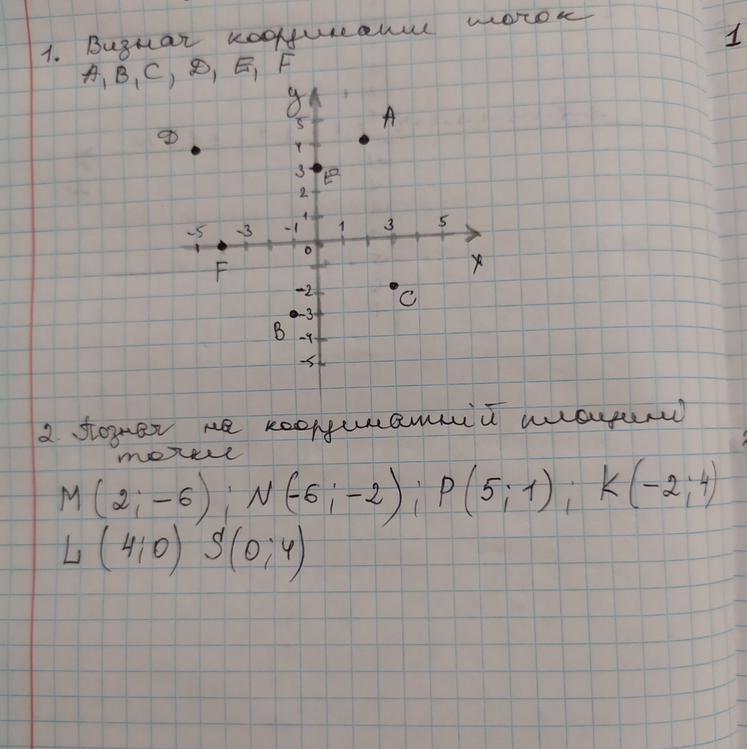 1. Визнач координати точок
A, B, C, D, E, F
y
5
D
4
A
3
E
2
1
-5 -3 -1 0 1 3 5
x
F
-2
C
B
-3
-4
-5
2. Познач на координатній площині
точки
M (2; -6) ; N (-6; -2) ; P (5; 1) ; K (-2; 4)
L (4; 0) S (0; 4)
1